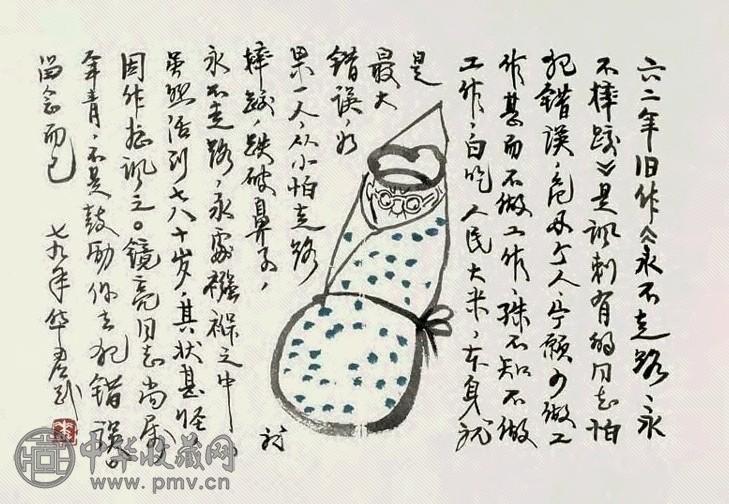 六二年旧作《永不走路，永
不摔跤》是讽刺有的同志怕
犯错误，危及个人，宁愿少做工
作甚而不做工作，殊不知不做
工作，白吃人民大米，本身就
是
最大
错误，如
果一人，从小怕走路
摔跤，跌破鼻子，
永不走路，永处襁褓之中
虽然活到七八十岁，其状甚怪
因作讽之。镜亮同志尚属
年青，不是鼓励你去犯错误
留念而已 七九年华君武
中华收藏网
www.pmv.cn